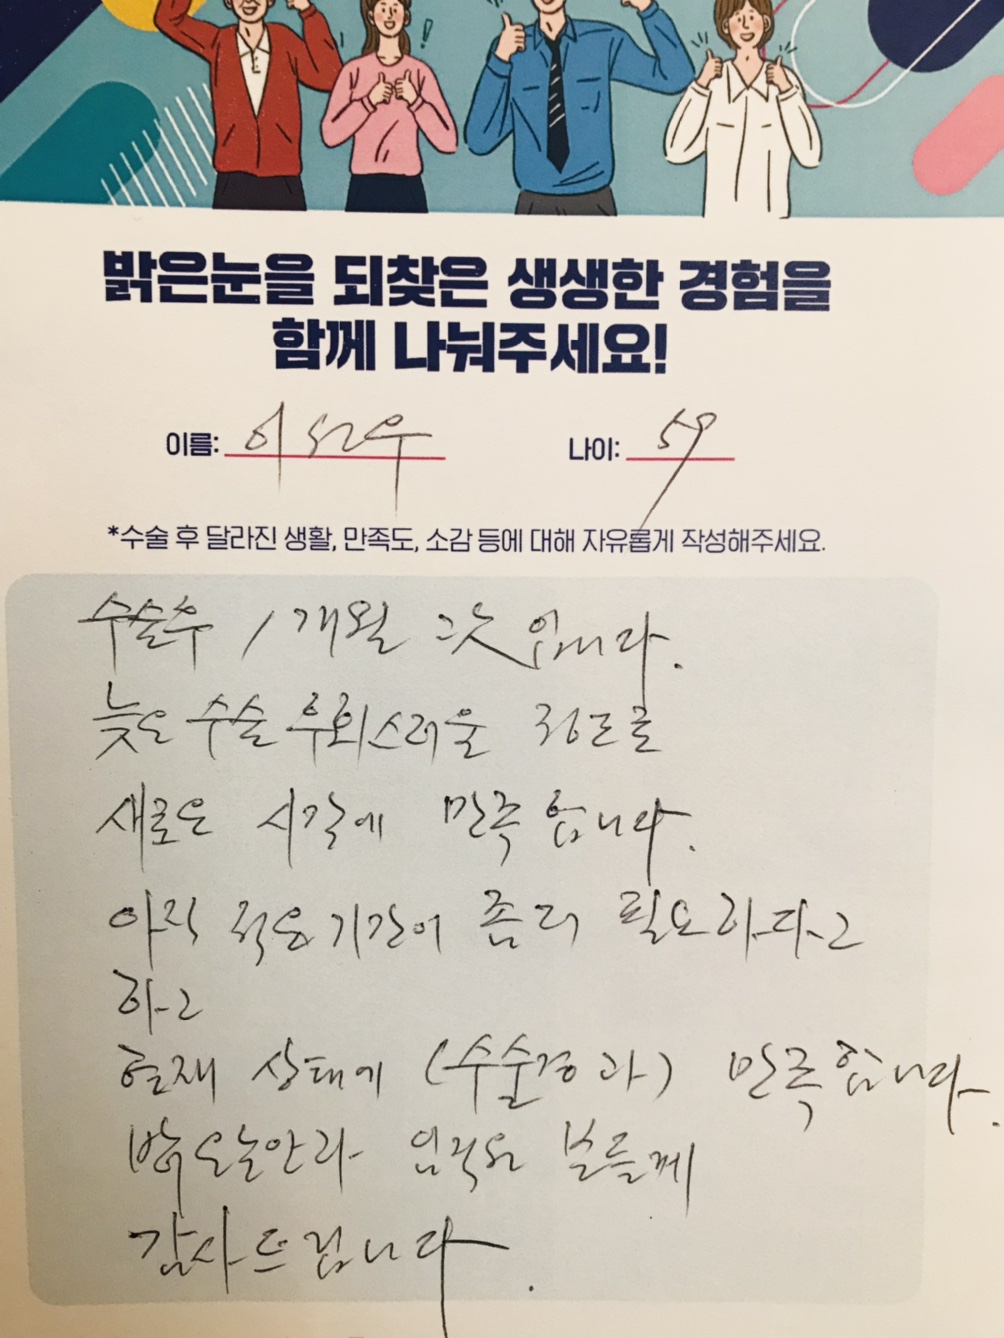 밝은눈을 되찾은 생생한 경험을
함께 나눠주세요!
이름: 이 나이: 59
*수술 후 달라진 생활, 만족도, 소감 등에 대해 자유롭게 작성해주세요.
수술후 1개월 입니다.
늦은 수술 후회스러울 정도로
새로운 시각에 만족합니다.
아직 적응기간이 좀 더 필요하다고
하고
현재 상태에 (수술경과) 만족합니다.
밝은눈안과 임직원 분들께
감사드립니다.